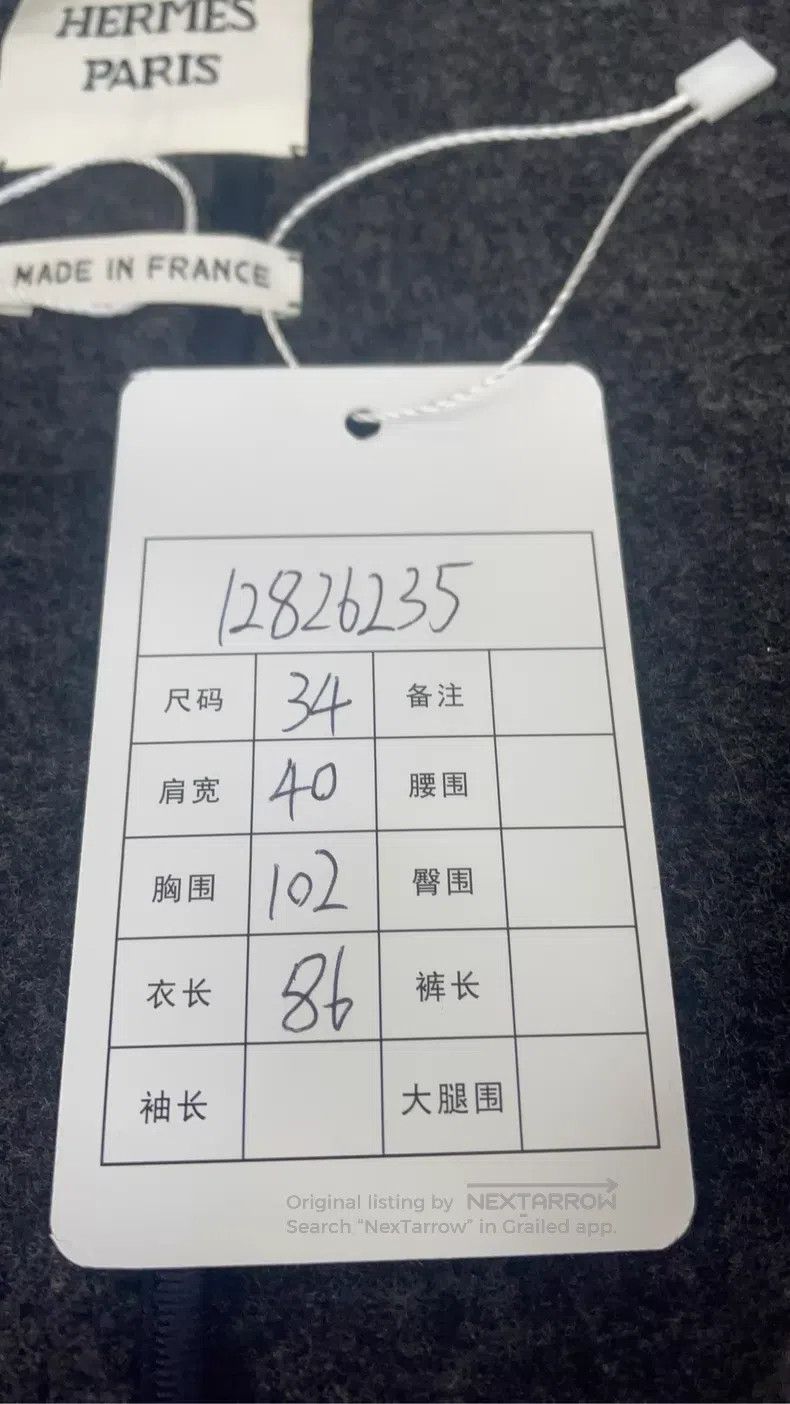 HERMES
PARIS
MADE IN FRANCE
12826235
尺码 34 备注
肩宽 40 腰围
胸围 102 臀围
衣长 86 裤长
袖长 大腿围
Original listing by NEXTARROW
Search “NexTarrow” in Grailed app.